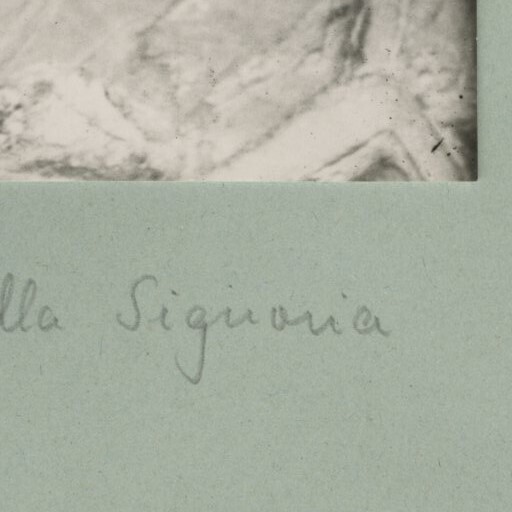 lla Signoria